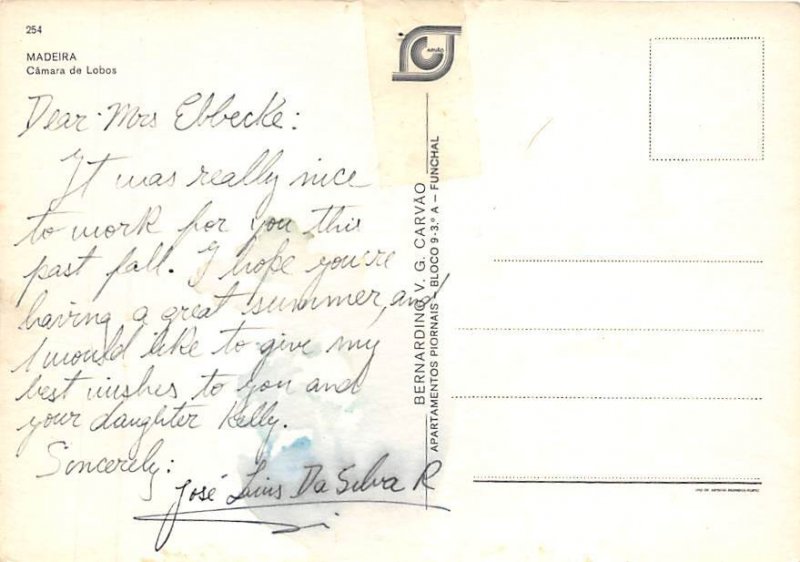 254
MADEIRA
Câmara de Lobos
Dear Mrs Ebbecke:
It was really nice
to work for you this
past fall. I hope you're
having a great summer, and
I would like to give my
best wishes to you and
your daughter Kelly.
Sincerely:
José Luis Da Silva R
BERNARDINO V. G. CARVÃO
APARTAMENTOS PIORNAIS - BLOCO 9-3.º A - FUNCHAL